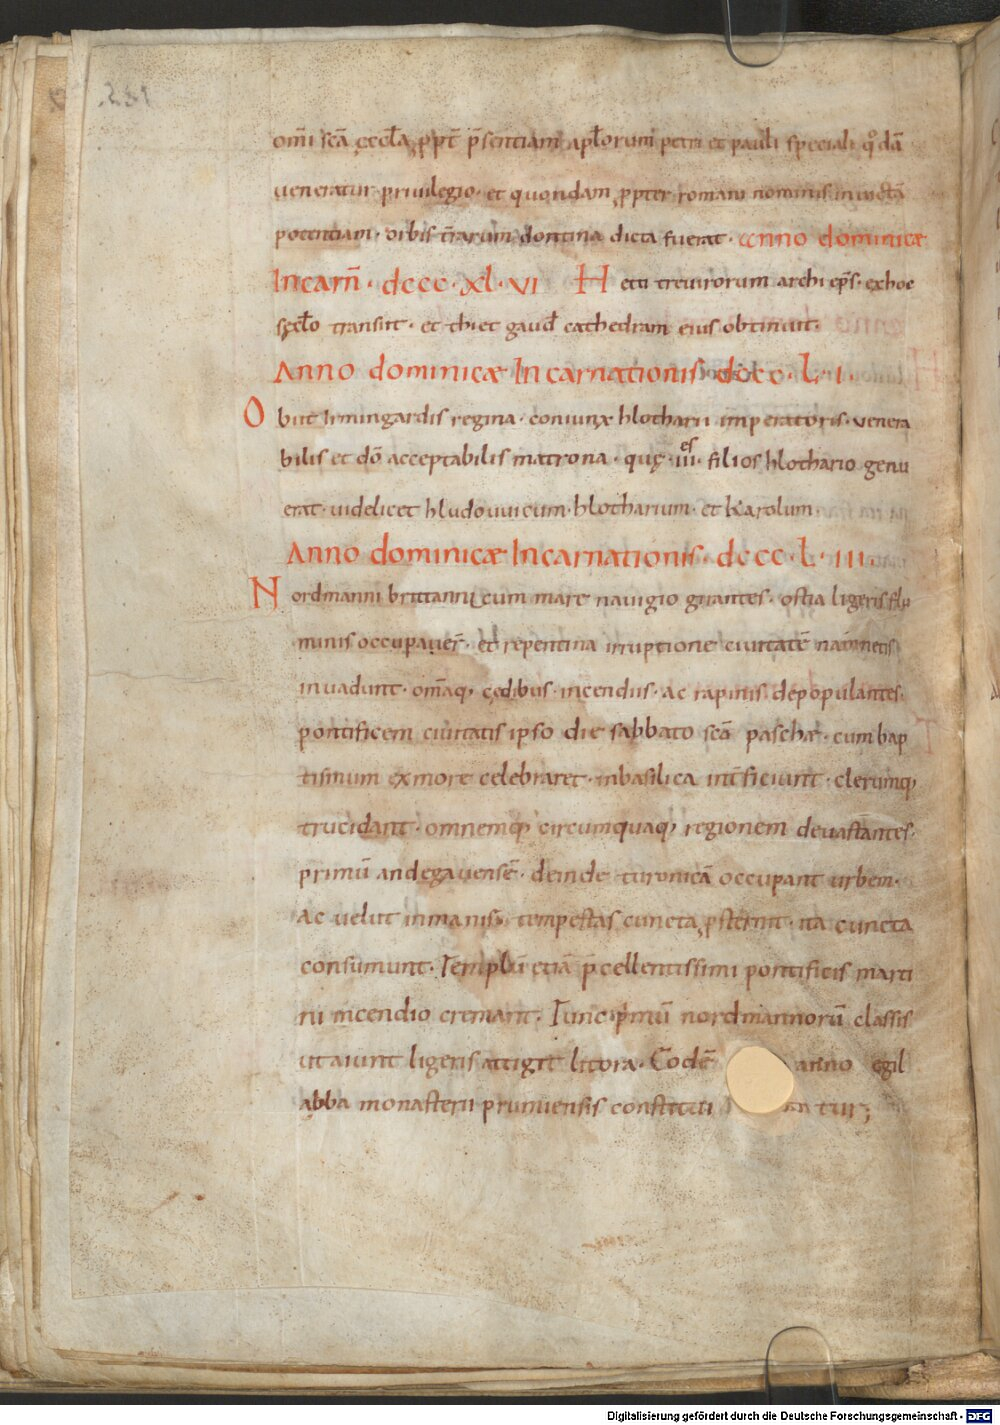 om̄i scā ęccl̄a ꝓpt̄ p̄sentiam apl̄orum petri et pauli speciali qͦdā
veneratur privilegio· et quondam ꝓpter romani nominis invictā
potentiam· orbis t̄rarum domina dicta fuerat· Anno dominicæ
Incarn̄· dccc·xl·vi Hetti trevirorum archi ep̄s· ex hoc
scło transiit· et thietgaud cathedram eius obtinuit·
Anno dominicæ Incarnationis dccc·L·I·
Obiit Irmingardis regina· coniunx hlotharii imperatoris· venera
bilis et dō acceptabilis matrona· quę ·iii·es filios hlothario genu
erat· videlicet hludovvicum· hlotharium· et Karolum·
Anno dominicæ Incarnationis· dccc·L·III·
Nordmanni brittannicum mare navigio girantes· ostia ligeris flu
minis occupaver̄· et repentina irruptione civitatē namnetis
invadunt· om̄iaq; cędibus· incendiis· ac rapinis depopulantes·
pontificem civitatis ipso die sabbato scō paschæ· cum bap
tismum ex more celebraret· in basilica int̄ficiunt· clerumq;
trucidant· omnemq; circumquaq; regionem devastantes·
primū andegavensē· deinde turonicā occupant urbem·
Ac velut inmanis tempestas cuncta ꝓsternit· ita cuncta
consumunt· Templū etiā p̄cellentissimi pontificis marti
ni incendio cremant· Tunc primū nordmannorū classis
ut aiunt ligeris attigit litora· Eodē anno egil
abba monasterii prumiensis constitui tur;
Digitalisierung gefördert durch die Deutsche Forschungsgemeinschaft - DFG